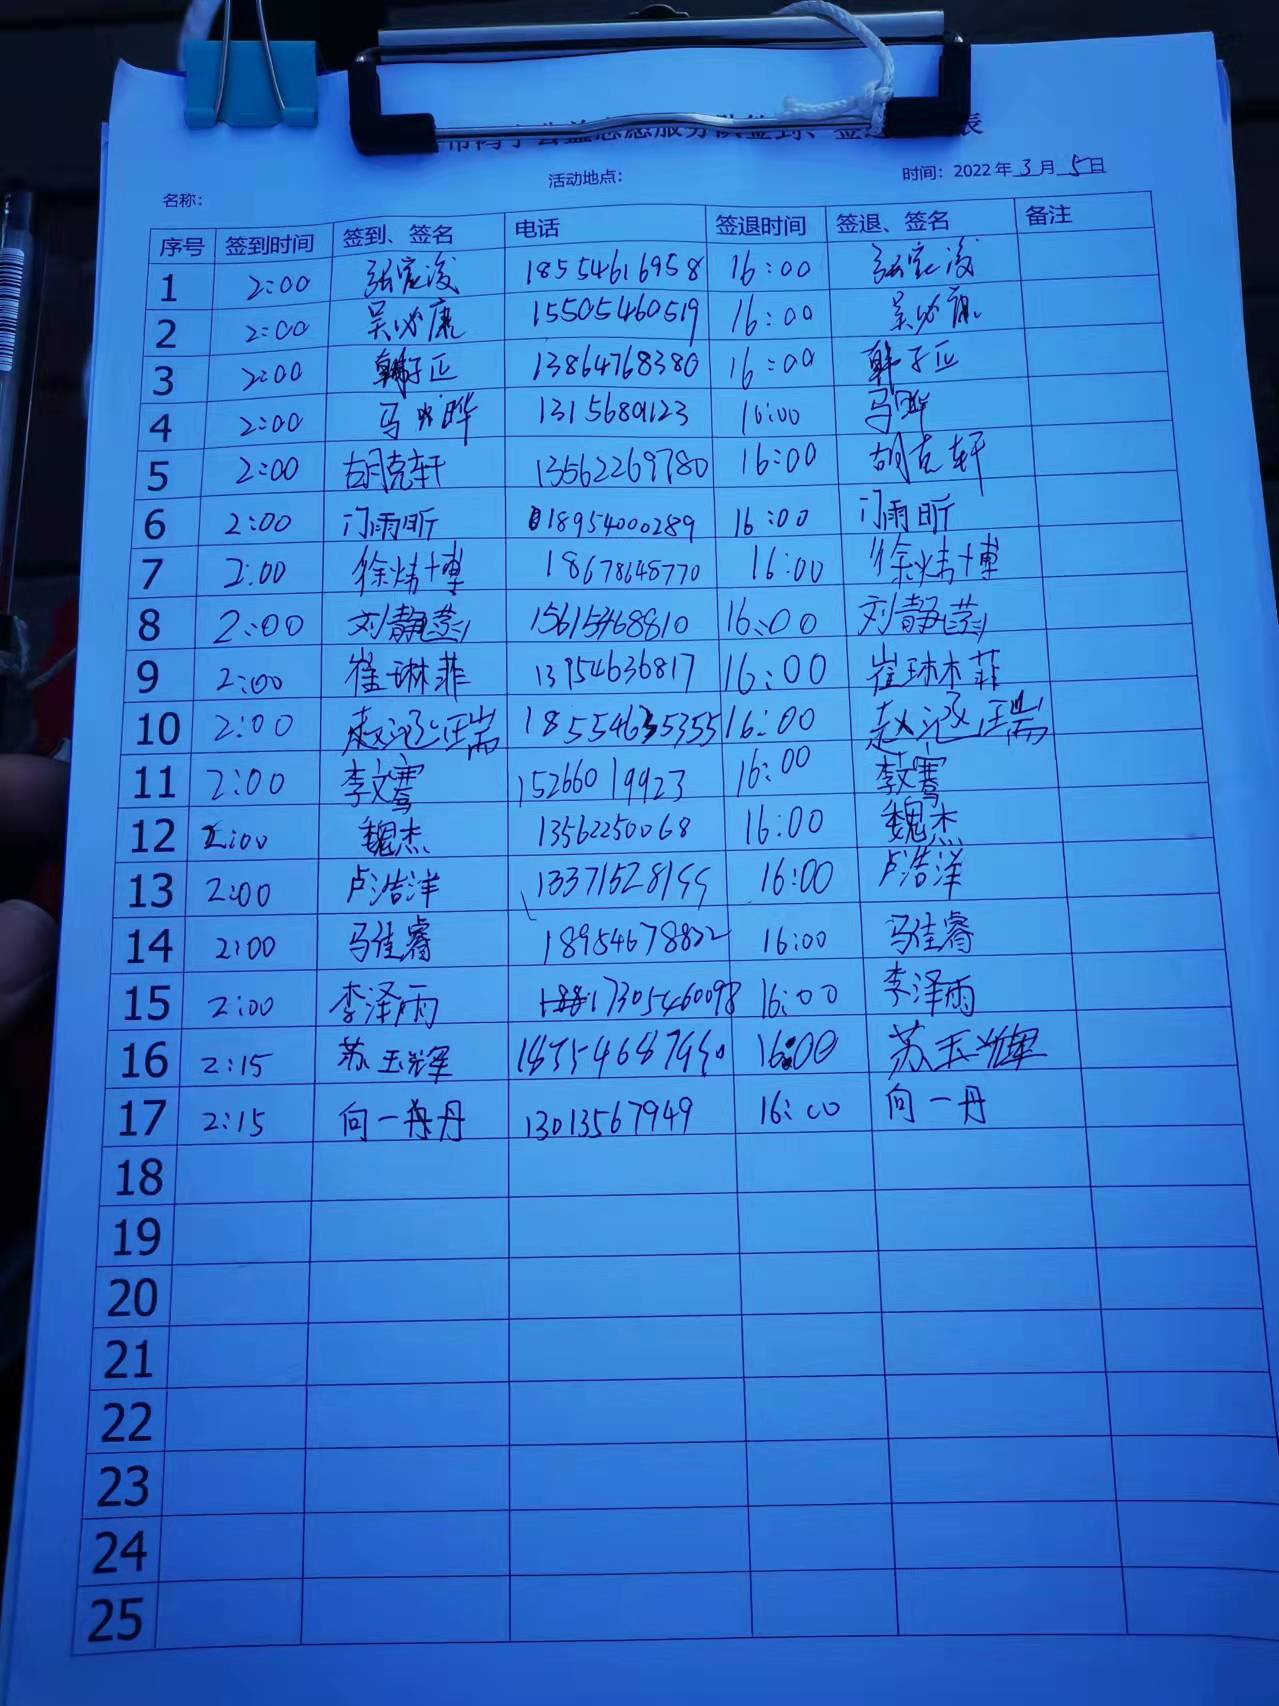 益志愿服务队签到、签 表
名称: 活动地点: 时间: 2022年3月5日
序号 签到时间 签到、签名 电话 签退时间 签退、签名 备注
1 2:00 张家浚 18554616958 16:00 张家浚
2 2:00 吴必康 15505460519 16:00 吴必康
3 2:00 韩子正 13864768380 16:00 韩子正
4 2:00 马 晔 16:00 马晔
5 2:00 胡克轩 13562269780 16:00 胡克轩
6 2:00 门雨昕 18954000289 16:00 门雨昕
7 2:00 徐炜博 18678648770 16:00 徐炜博
8 2:00 16:00
9 2:00 崔琳菲 13954636817 16:00 崔琳菲
10 2:00 16:00
11 2:00 李文骞 15266019923 16:00 李文骞
12 2:00 魏杰 13562250068 16:00 魏杰
13 2:00 卢浩洋 16:00 卢浩洋
14 2:00 马佳睿 18954678822 16:00 马佳睿
15 2:00 李泽雨 17305460098 16:00 李泽雨
16 2:15 苏玉辉 16:00 苏玉辉
17 2:15 向一丹 13013567949 16:00 向一丹
18
19
20
21
22
23
24
25